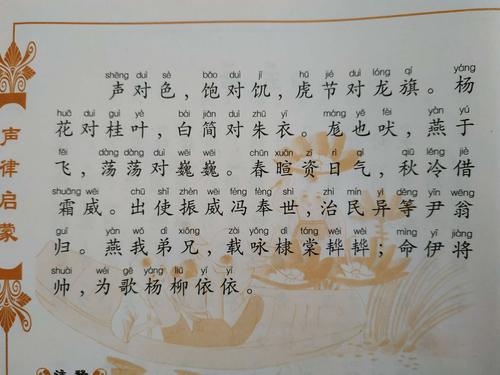 声律启蒙
shēng duì sè bǎo duì jī hǔ jié duì lóng qí yáng
声对色，饱对饥，虎节对龙旗。杨
huā duì guì yè bái jiǎn duì zhū yī máng yě fèi yàn yú
花对桂叶，白简对朱衣。尨也吠，燕于
fēi dàng dàng duì wēi wēi chūn xuān zī rì qì qiū lěng jiè
飞，荡荡对巍巍。春暄资日气，秋冷借
shuāng wēi chū shǐ zhèn wēi féng fèng shì zhì mín yì děng yǐn wēng
霜威。出使振威冯奉世，治民异等尹翁
guī yàn wǒ dì xiōng zài yǒng dì táng wěi wěi mìng yī jiàng
归。燕我弟兄，载咏棣棠韡韡；命伊将
shuài wéi gē yáng liǔ yī yī
帅，为歌杨柳依依。